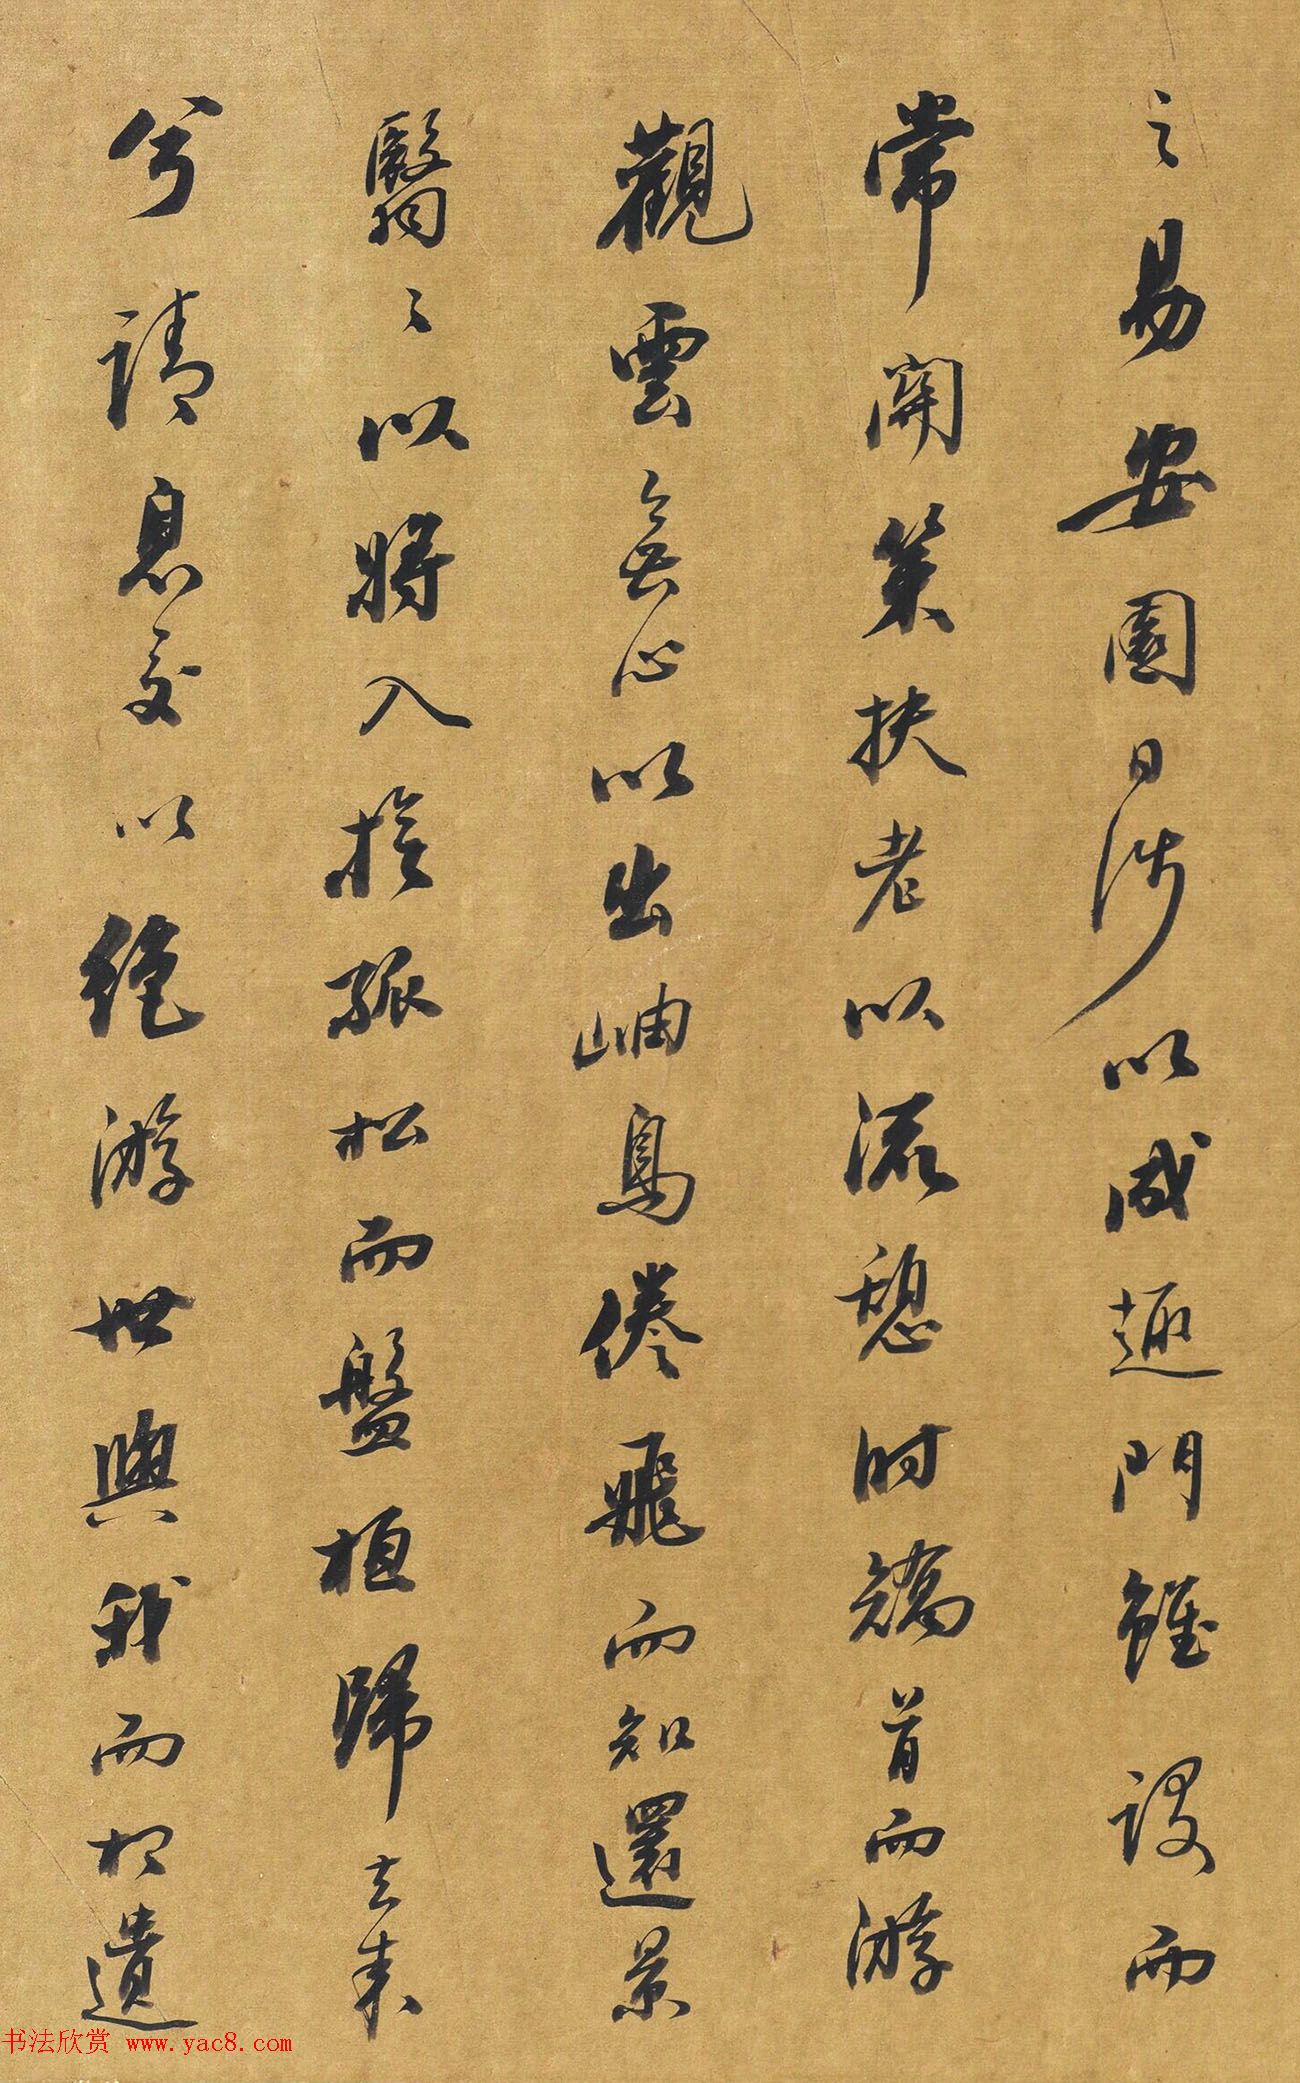 之易安園日涉以成趣門雖設而
常關策扶老以流憩時矯首而游
觀雲無心以出岫鳥倦飛而知還景
翳〻以將入撫孤松而盤桓歸去来
兮請息交以絶游世與我而相遺
书法欣赏 www.yac8.com